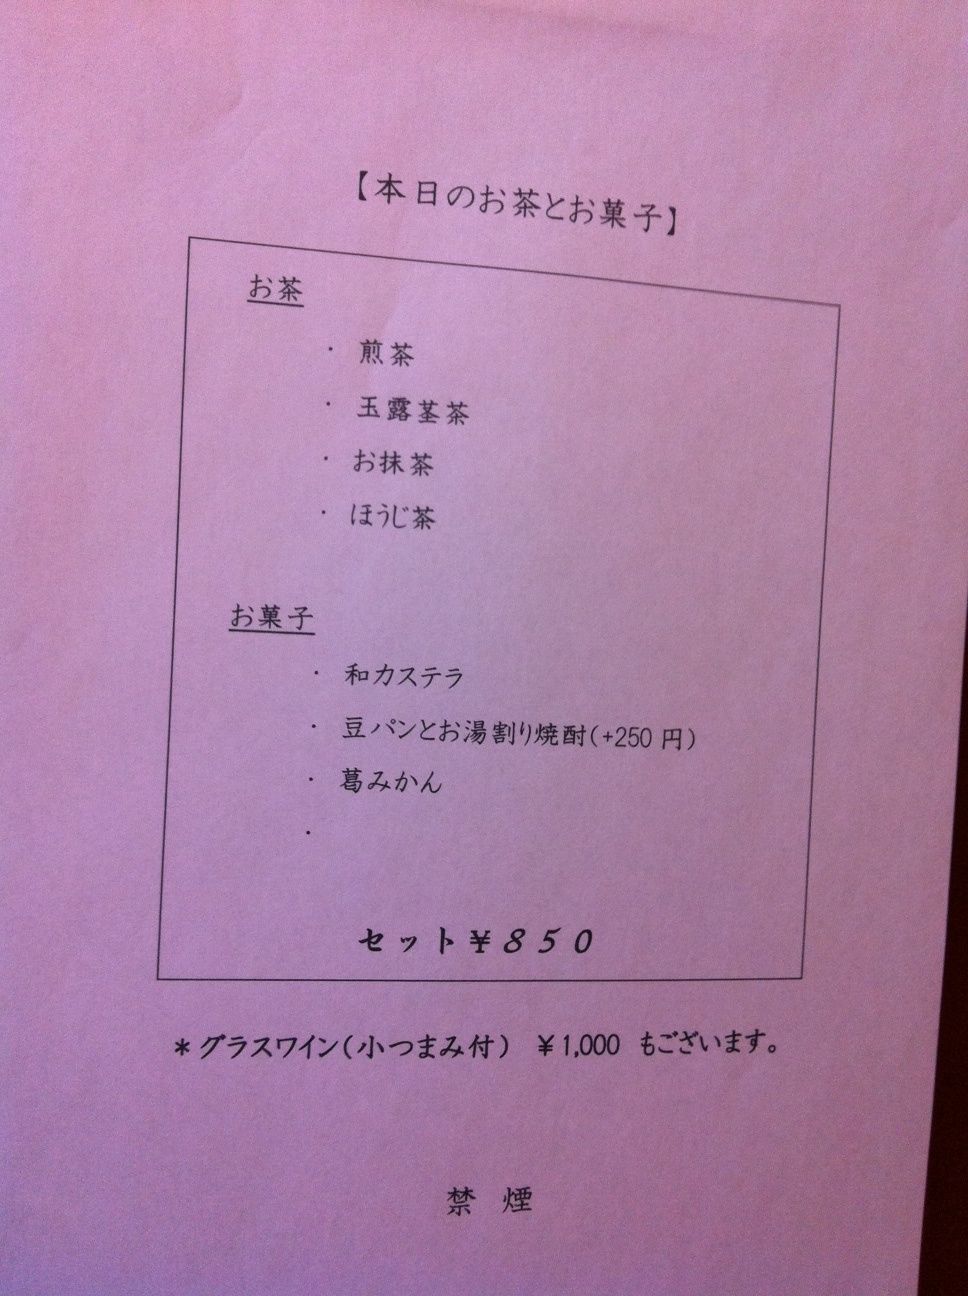 【本日のお茶とお菓子】
お茶
・ 煎茶
・ 玉露茎茶
・ お抹茶
・ ほうじ茶
お菓子
・ 和カステラ
・ 豆パンとお湯割り焼酎(+250円)
・ 葛みかん
・
セット¥850
*グラスワイン(小つまみ付) ¥1,000 もございます。
禁 煙